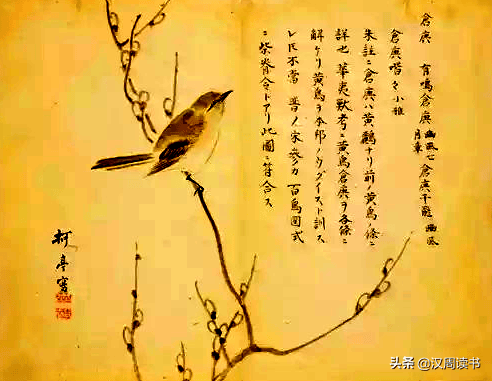 倉庚 有鳴倉庚 豳風七月章 倉庚于飛 豳風
倉庚喈々 小雅
朱註ニ倉庚ハ黄鸝ナリ前ノ黄鳥ノ條ニ
詳也 華夷獣考ニ黄鳥倉庚ヲ各條ニ
解ケリ黄鳥ヲ本邦ノウグイスト訓ス
レ𪜈不當 昔ノ宋 百鳥圖式
ニ柴脊令トアリ此圖ニ符合ス
柯亭
头条 @汉周读书